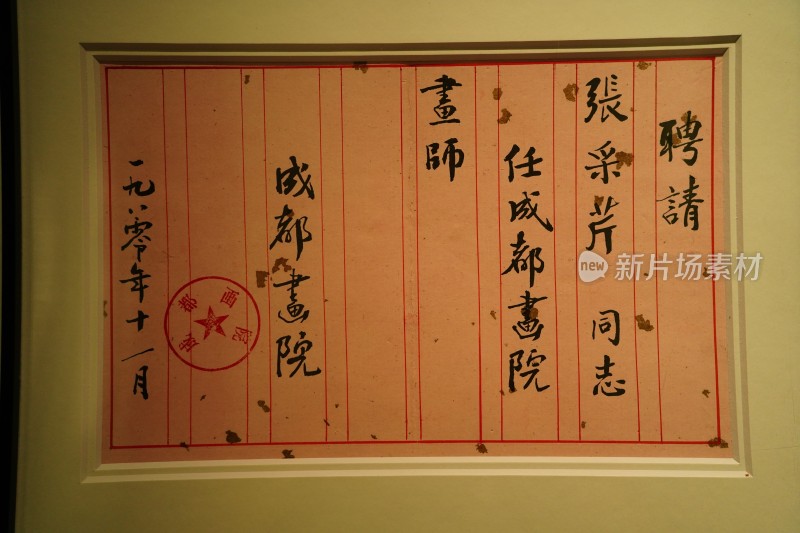 聘請
張采芹 同志
任成都畫院
畫師
成都畫院
一九八零年十一月
成都画院
new 新片場素材